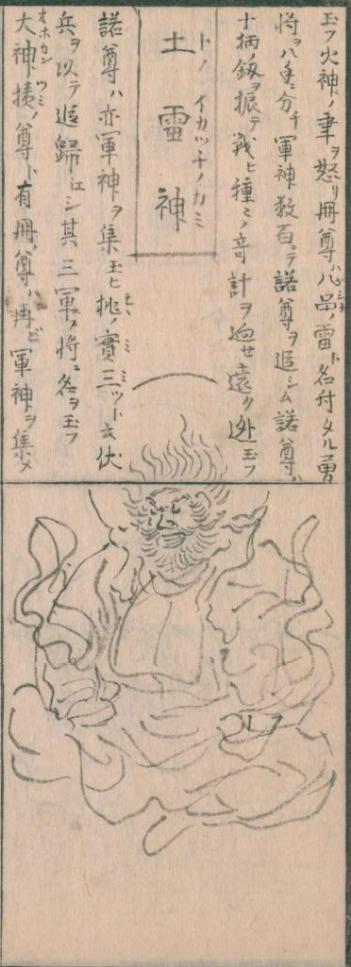 玉フ火神ノ事ヲ怒リ冊尊ハ八色ノ雷ト名付タル勇
将ヲ八手ニ分チ軍神数百ニテ諾尊ヲ追シム諾尊ハ
十柄釼ヲ振テ戦ヒ種〻ノ奇計ヲ廻セ遠ク逃玉フ
土雷神
トノイカツチノカミ
諾尊ハ亦軍神ヲ集玉ヒ桃ノ實三ツト云伏
モヽミミツ
兵ヲ以テ追歸エシ其三軍ノ将ニ名ヲ玉フ
大神ノ尊ト有冊ノ尊ハ再ビ軍神ヲ集メ
オホカンツミノ